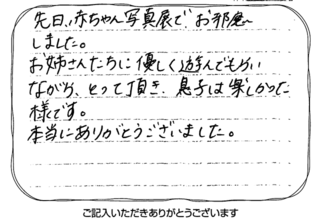 先日、赤ちゃん写真展で、お邪魔
しました。
お姉さんたちに優しく遊んでもらい
ながら、とって頂き、息子は楽しかった
様です。
本当にありがとうございました。
ご記入いただきありがとうございます